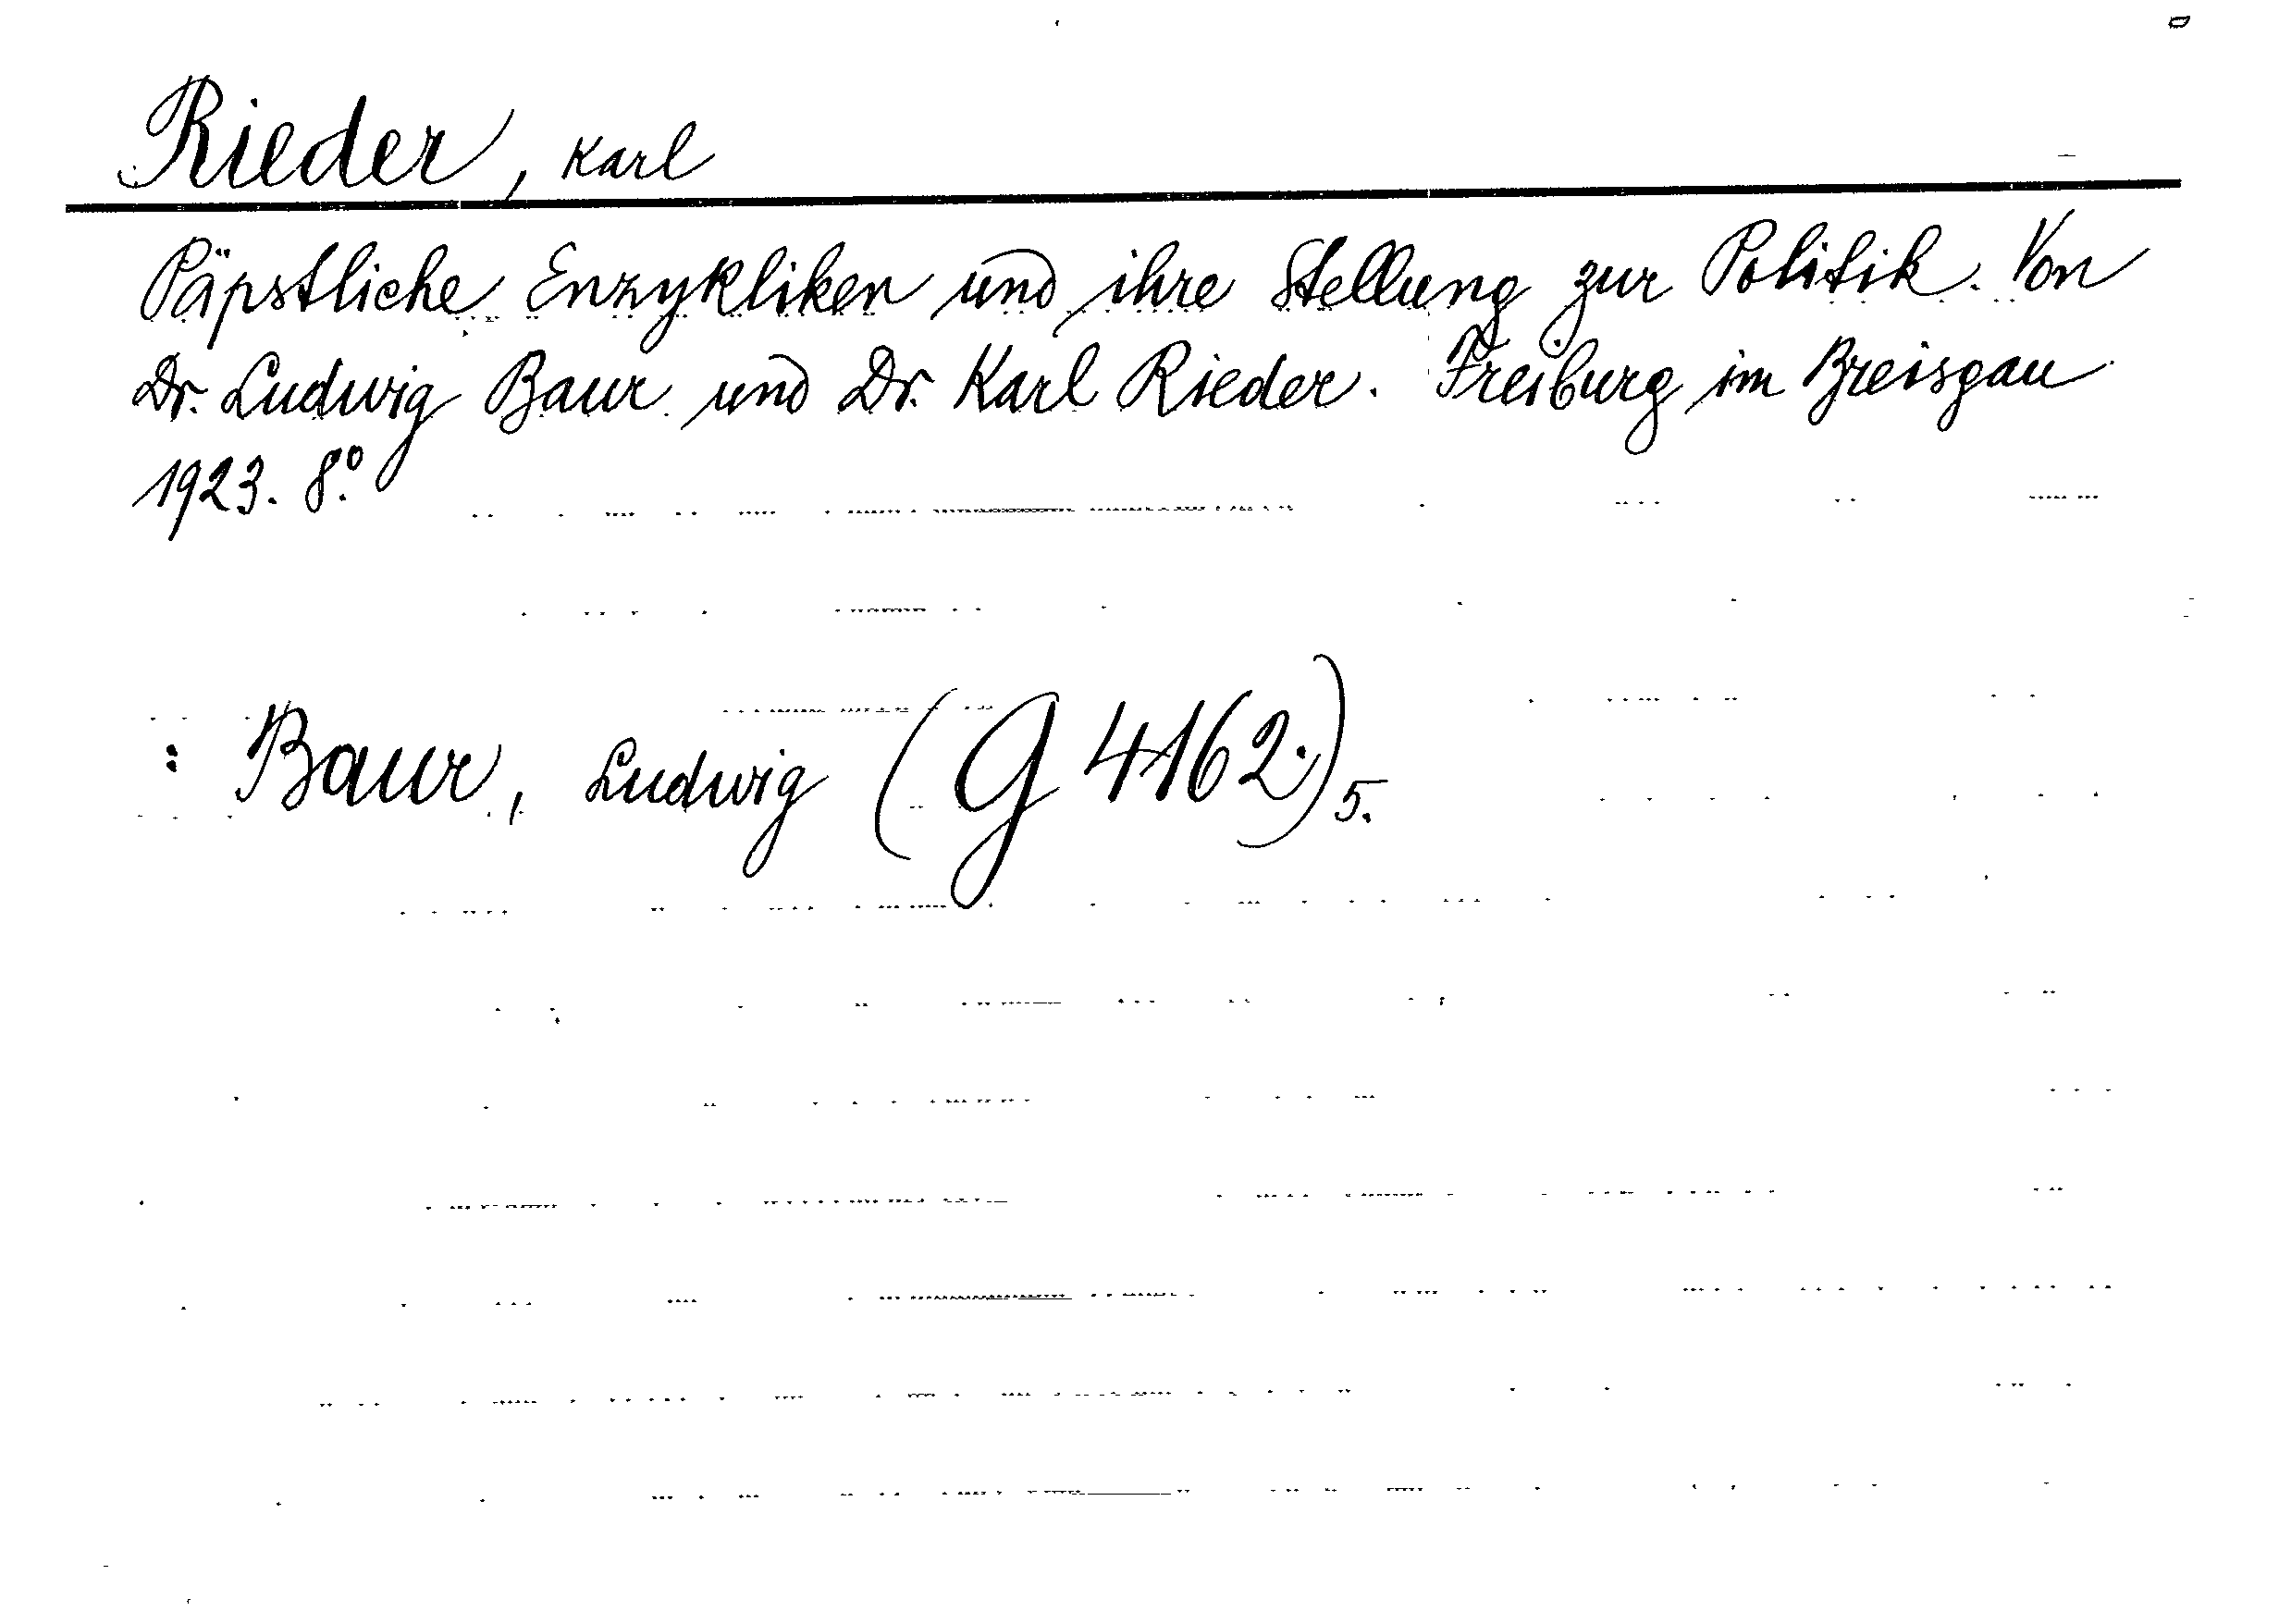 Rieder, Karl
Päpstliche Enzykliken und ihre Stellung zur Politik. Von
Dr. Ludwig Baur und Dr. Karl Rieder. Freiburg im Breisgau
1923. 8.°
: Baur, Ludwig (G 4162.)5.